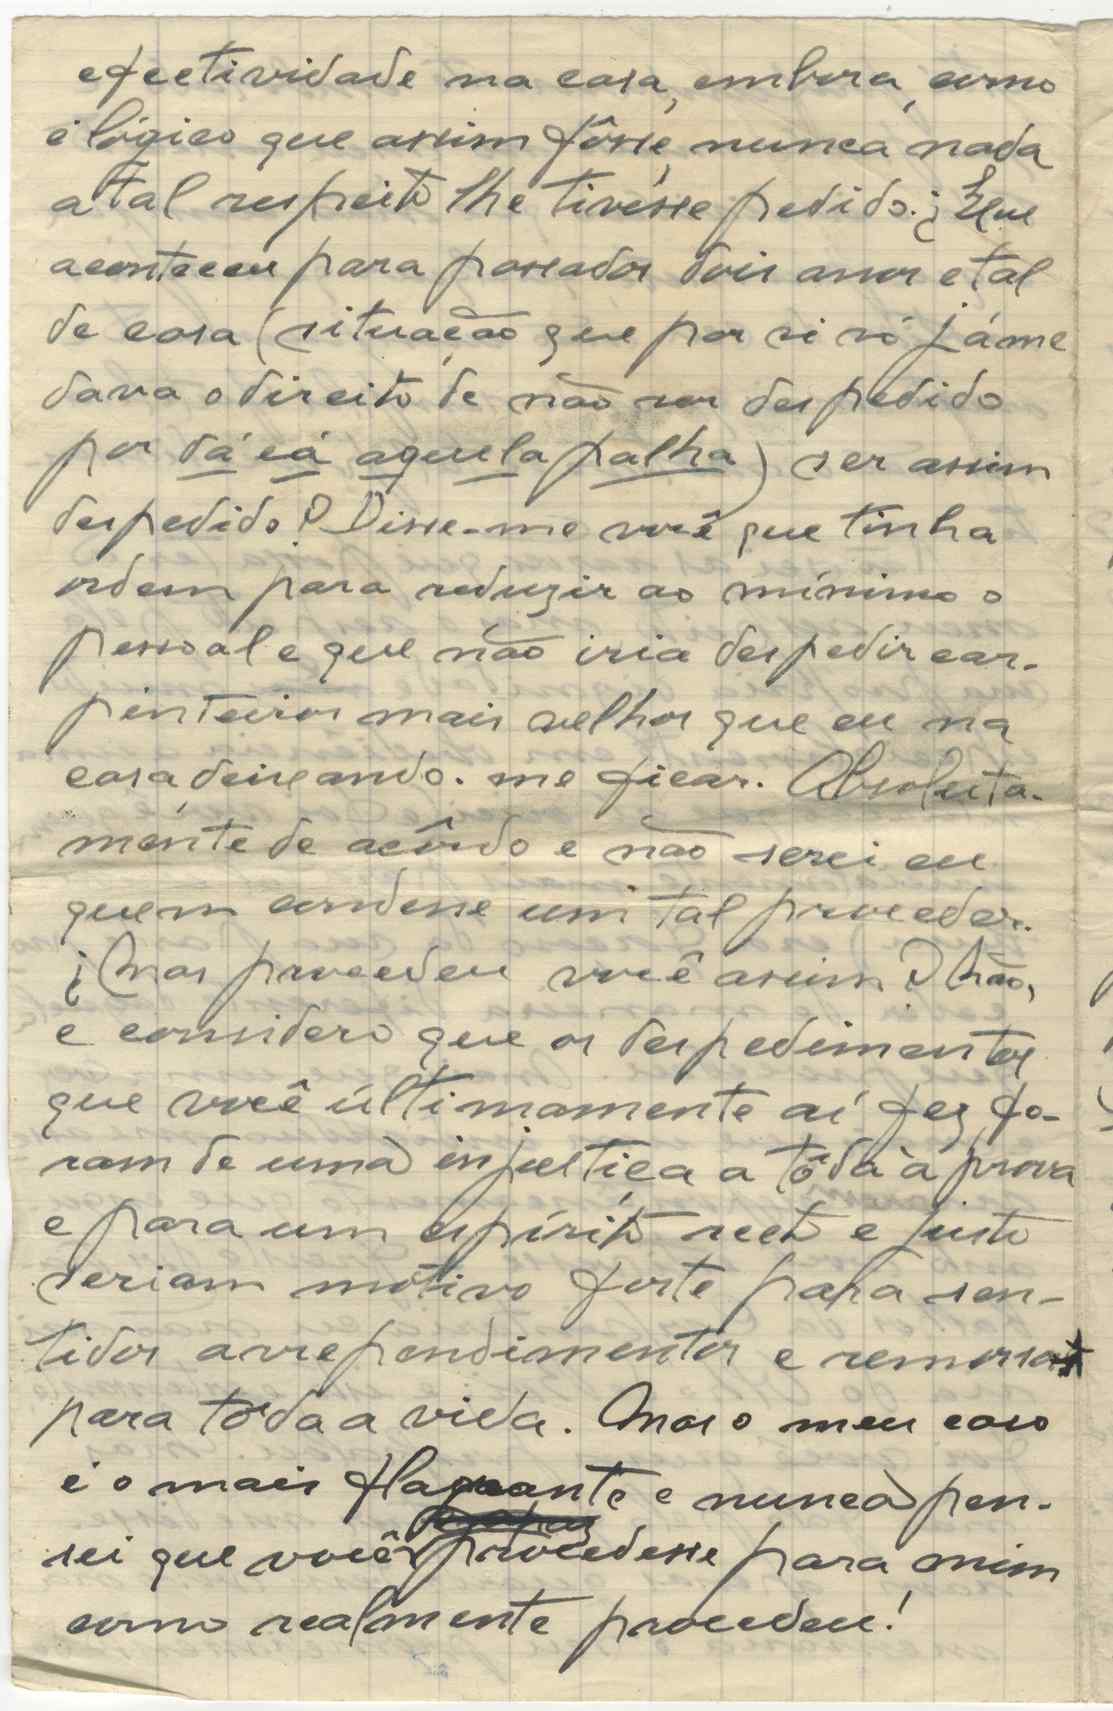 efectividade na casa, embora, como
é lógico que assim fôsse, nunca nada
a tal respeito lhe tivesse pedido. ¿ Que
aconteceu para passados dois anos e tal
de casa (situação que por si só já me
dava o direito de não ser despedido
por dá cá aquela palha) ser assim
despedido? Disse-me você que tinha
ordem para reduzir ao mínimo o
pessoal e que não iria despedir car-
pinteiros mais velhos que eu na
casa deixando-me ficar. Absoluta-
mente de acôrdo e não serei eu
quem condene um tal proceder.
¿ Mas procedeu você assim? Não,
e considero que os despedimentos
que você últimamente aí fez, fo-
ram de uma injustiça a tôda a prova
e para um espírito recto e justo
seriam motivo forte para sen-
tidos arrependimentos e remorsos
para tôda a vida. Mas o meu caso
é o mais flagrante e nunca pen-
sei que você procedesse para mim
como realmente procedeu!